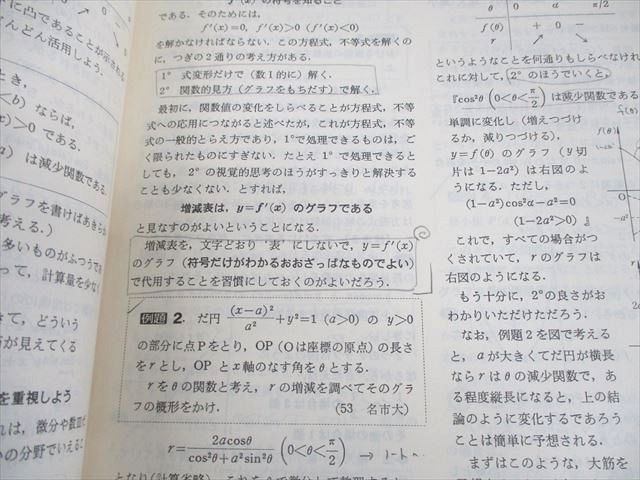 に凸であることが示され
んどん活用しよう.
とき,
<b) ならば,
)>0 である.
) は減少関数である.
グラフを書けばあきらか
考える.)
多いものがふつうで
って,計算量を少なく
きて,どういう
が見えてくる
を重視しよう
れは,微分や数Ⅲ
いの分野でいえる
f'(x) の符号を知ること
である.そのためには,
f'(x)=0, f'(x)>0 (f'(x)<0)
を解かなければならない.この方程式,不等式を解くの
に,つぎの2通りの考え方がある.
1° 式変形だけで(数Ⅰ的に)解く.
2° 関数的見方(グラフをもちだす)で解く.
最初に,関数値の変化をしらべることが方程式,不等
式への応用につながると述べたが,これが方程式,不等
式の一般的とらえ方であり,1°で処理できるものは,ご
く限られたものにすぎない.たとえ 1° で処理できると
しても, 2° の視覚的思考のほうがすっきりと解決する
ことも少なくない.とすれば,
増減表は, y=f'(x) のグラフである
と見なすのがよいということになる.
増減表を,文字どおり“表”にしないで, y=f'(x)
のグラフ(符号だけがわかるおおざっぱなものでよい)
で代用することを習慣にしておくのがよいだろう.
例題 2. だ円 (x-a)²/a²+y²=1 (a>0) の y>0
の部分に点Pをとり,OP (Oは座標の原点)の長さ
を r とし, OP と x軸のなす角を θ とする.
r を θ の関数と考え, r の増減を調べてそのグラ
フの概形をかけ. (53 名市大)
r=2acosθ/(cos²θ+a²sin²θ) (0<θ<π/2) →
θ 0 α π/2
f(θ) + 0 −
↗ ↘
というようなことを何通りもしらべなけれ
これに対して, 2° のほうでいくと,
『cos²θ (0<θ<π/2) は減少関数である
単調に変化し(増えつづけ
るか,減りつづける),
y=f(θ) のグラフ (y 切
片は 1−2a²) は右図のよ
うになる.ただし,
(1−a²)cos²α−a²=0
(1−2a²>0) 』
これで,すべての場合がつ
くされていて, r のグラフは
右図のようになる.
もう十分に, 2°の良さがお
わかりいただけただろう.
なお,例題2を図で考える
と, a が大きくてだ円が横長
ならば r は θ の減少関数で,あ
る程度縦長になると,上の結
論のように変化するであろう
ことは簡単に予想される.
まずはこのような,大筋を
f(θ)